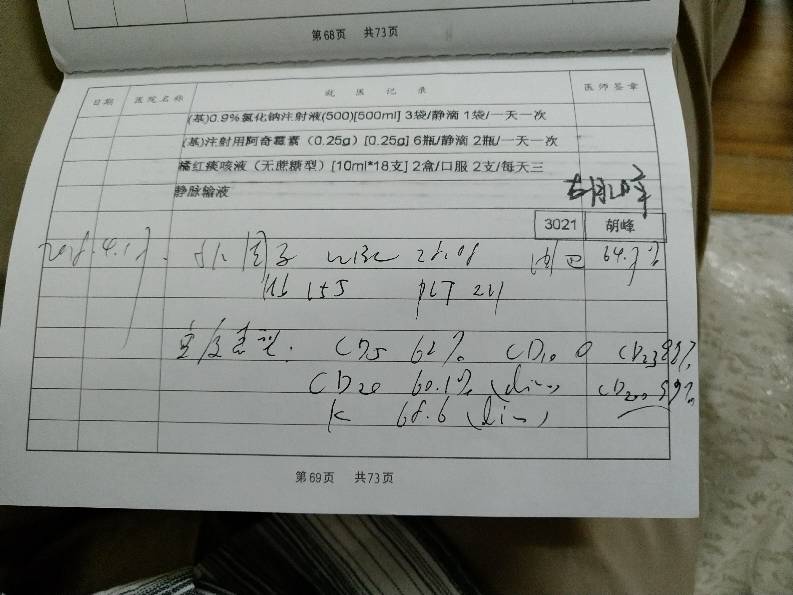 第68页 共73页
日期 医院名称 就医记录 医师签章
(基)0.9%氯化钠注射液(500)[500ml] 3袋/静滴 1袋/一天一次
(基)注射用阿奇霉素（0.25g）[0.25g] 6瓶/静滴 2瓶/一天一次
橘红痰咳液（无蔗糖型）[10ml*18支] 2盒/口服 2支/每天三
静脉输液
胡峰
3021 胡峰
WBC 28.08 淋巴 64.7%
Hb 155 PLT 211
免疫表型: CD5 62% CD10 0 CD23 88%
CD20 60.1% (dim) CD200 99%
K 68.6 (dim)
第69页 共73页